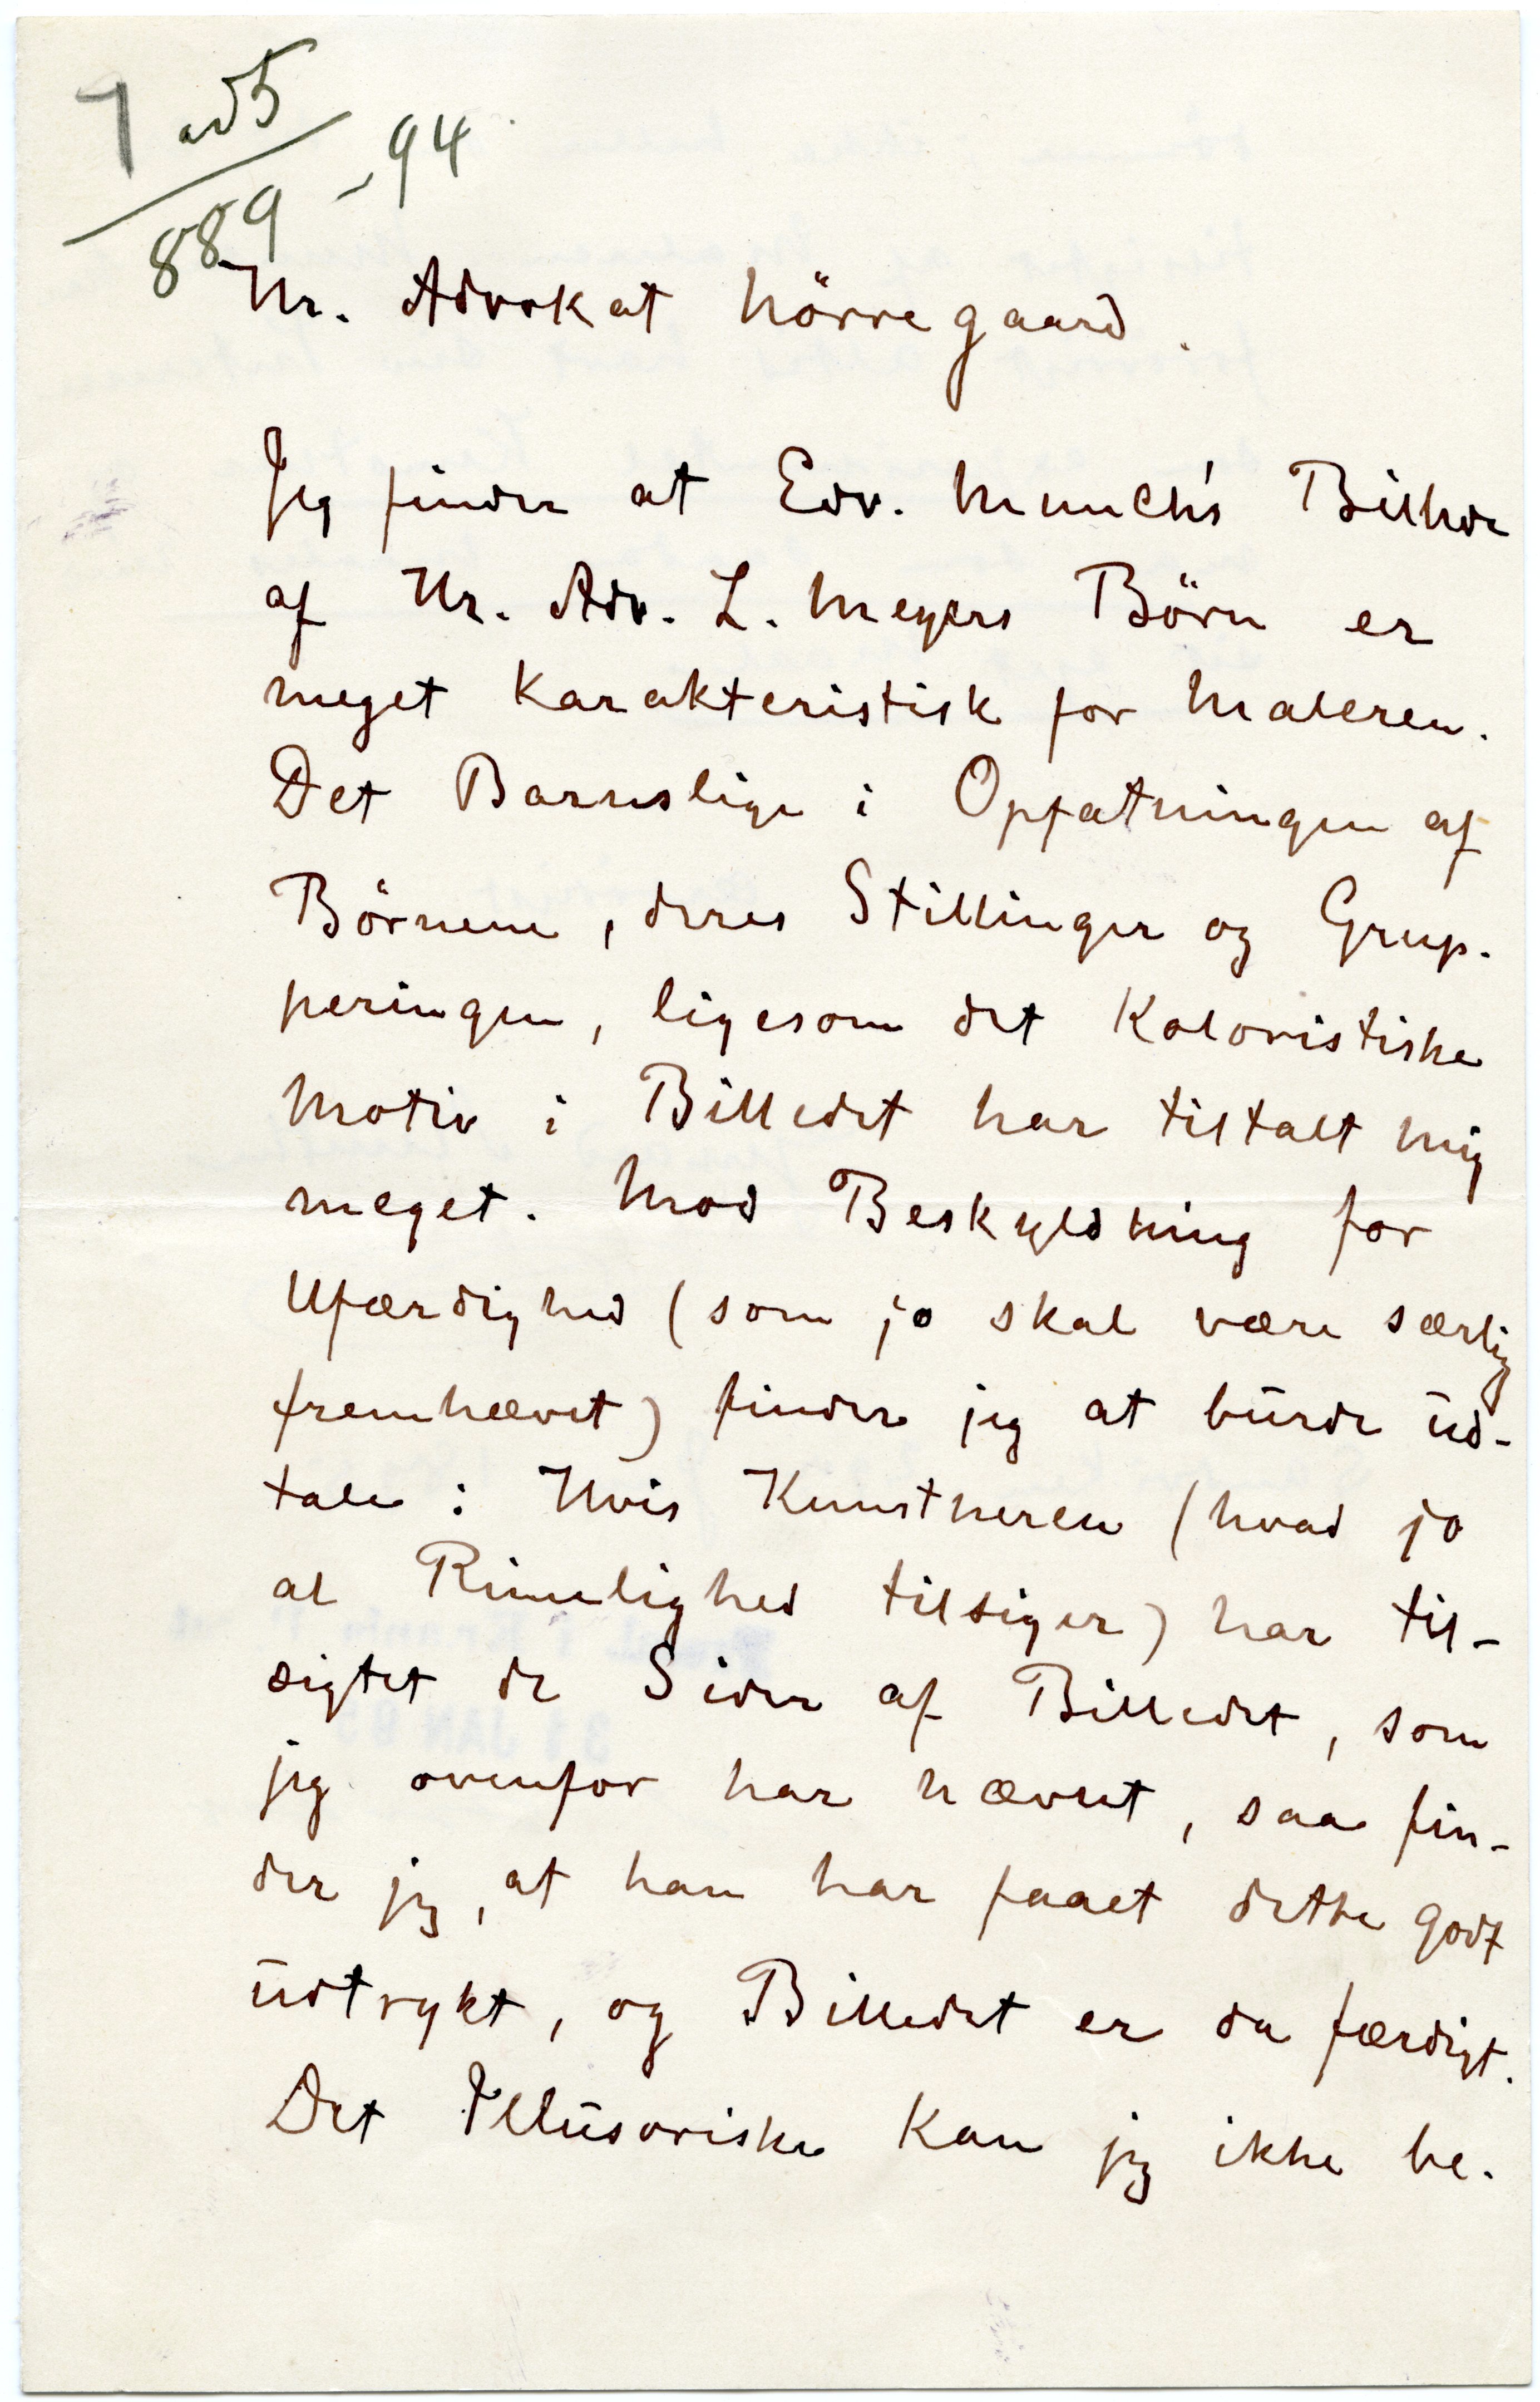 7 ad 5
889 - 94
Hr. Advokat Nörregaard.
Jeg finder at Edv. Munch's Billede
af Hr. Adv. L. Meyers Börn er
meget karakteristisk for Maleren.
Det Barnslige i Opfatningen af
Börnene, deres Stillinger og Grup-
peringen, ligesom det Koloristiske
Motiv i Billedet har tiltalt mig
meget. Mod Beskyldning for
Ufærdighed (som jo skal være særlig
fremhævet) finder jeg at burde ud-
tale: Hvis Kunstneren (hvad jo
al Rimelighed tilsiger) har til-
sigtet de Sider af Billedet, som
jeg ovenfor har nævnt, saa fin-
der jeg, at han har faaet dette godt
udtrykt, og Billedet er da færdigt.
Det Illusoriske kan jeg ikke be-